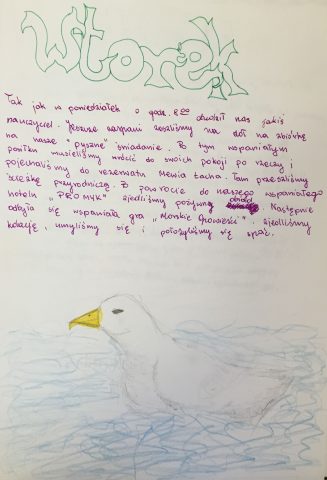 Wtorek
Tak jak w poniedziałek o godz. 8:00 obudził nas jakiś
nauczyciel. Jeszcze zaspani zeszliśmy na dół na zbiórkę
na nasze "pyszne" śniadanie. Po tym wspaniałym
posiłku musieliśmy wrócić do swoich pokoji po rzeczy i
pojechaliśmy do rezerwatu Mewia Łacha. Tam przeszliśmy
ścieżkę przyrodniczą. O powrocie do naszego wspaniałego
hotelu "PROMYK" zjedliśmy pożywny obiad. Następnie
odbyła się wspaniała gra "Morskie Opowieści", zjedliśmy
kolację, umyliśmy się i położyliśmy się spać.